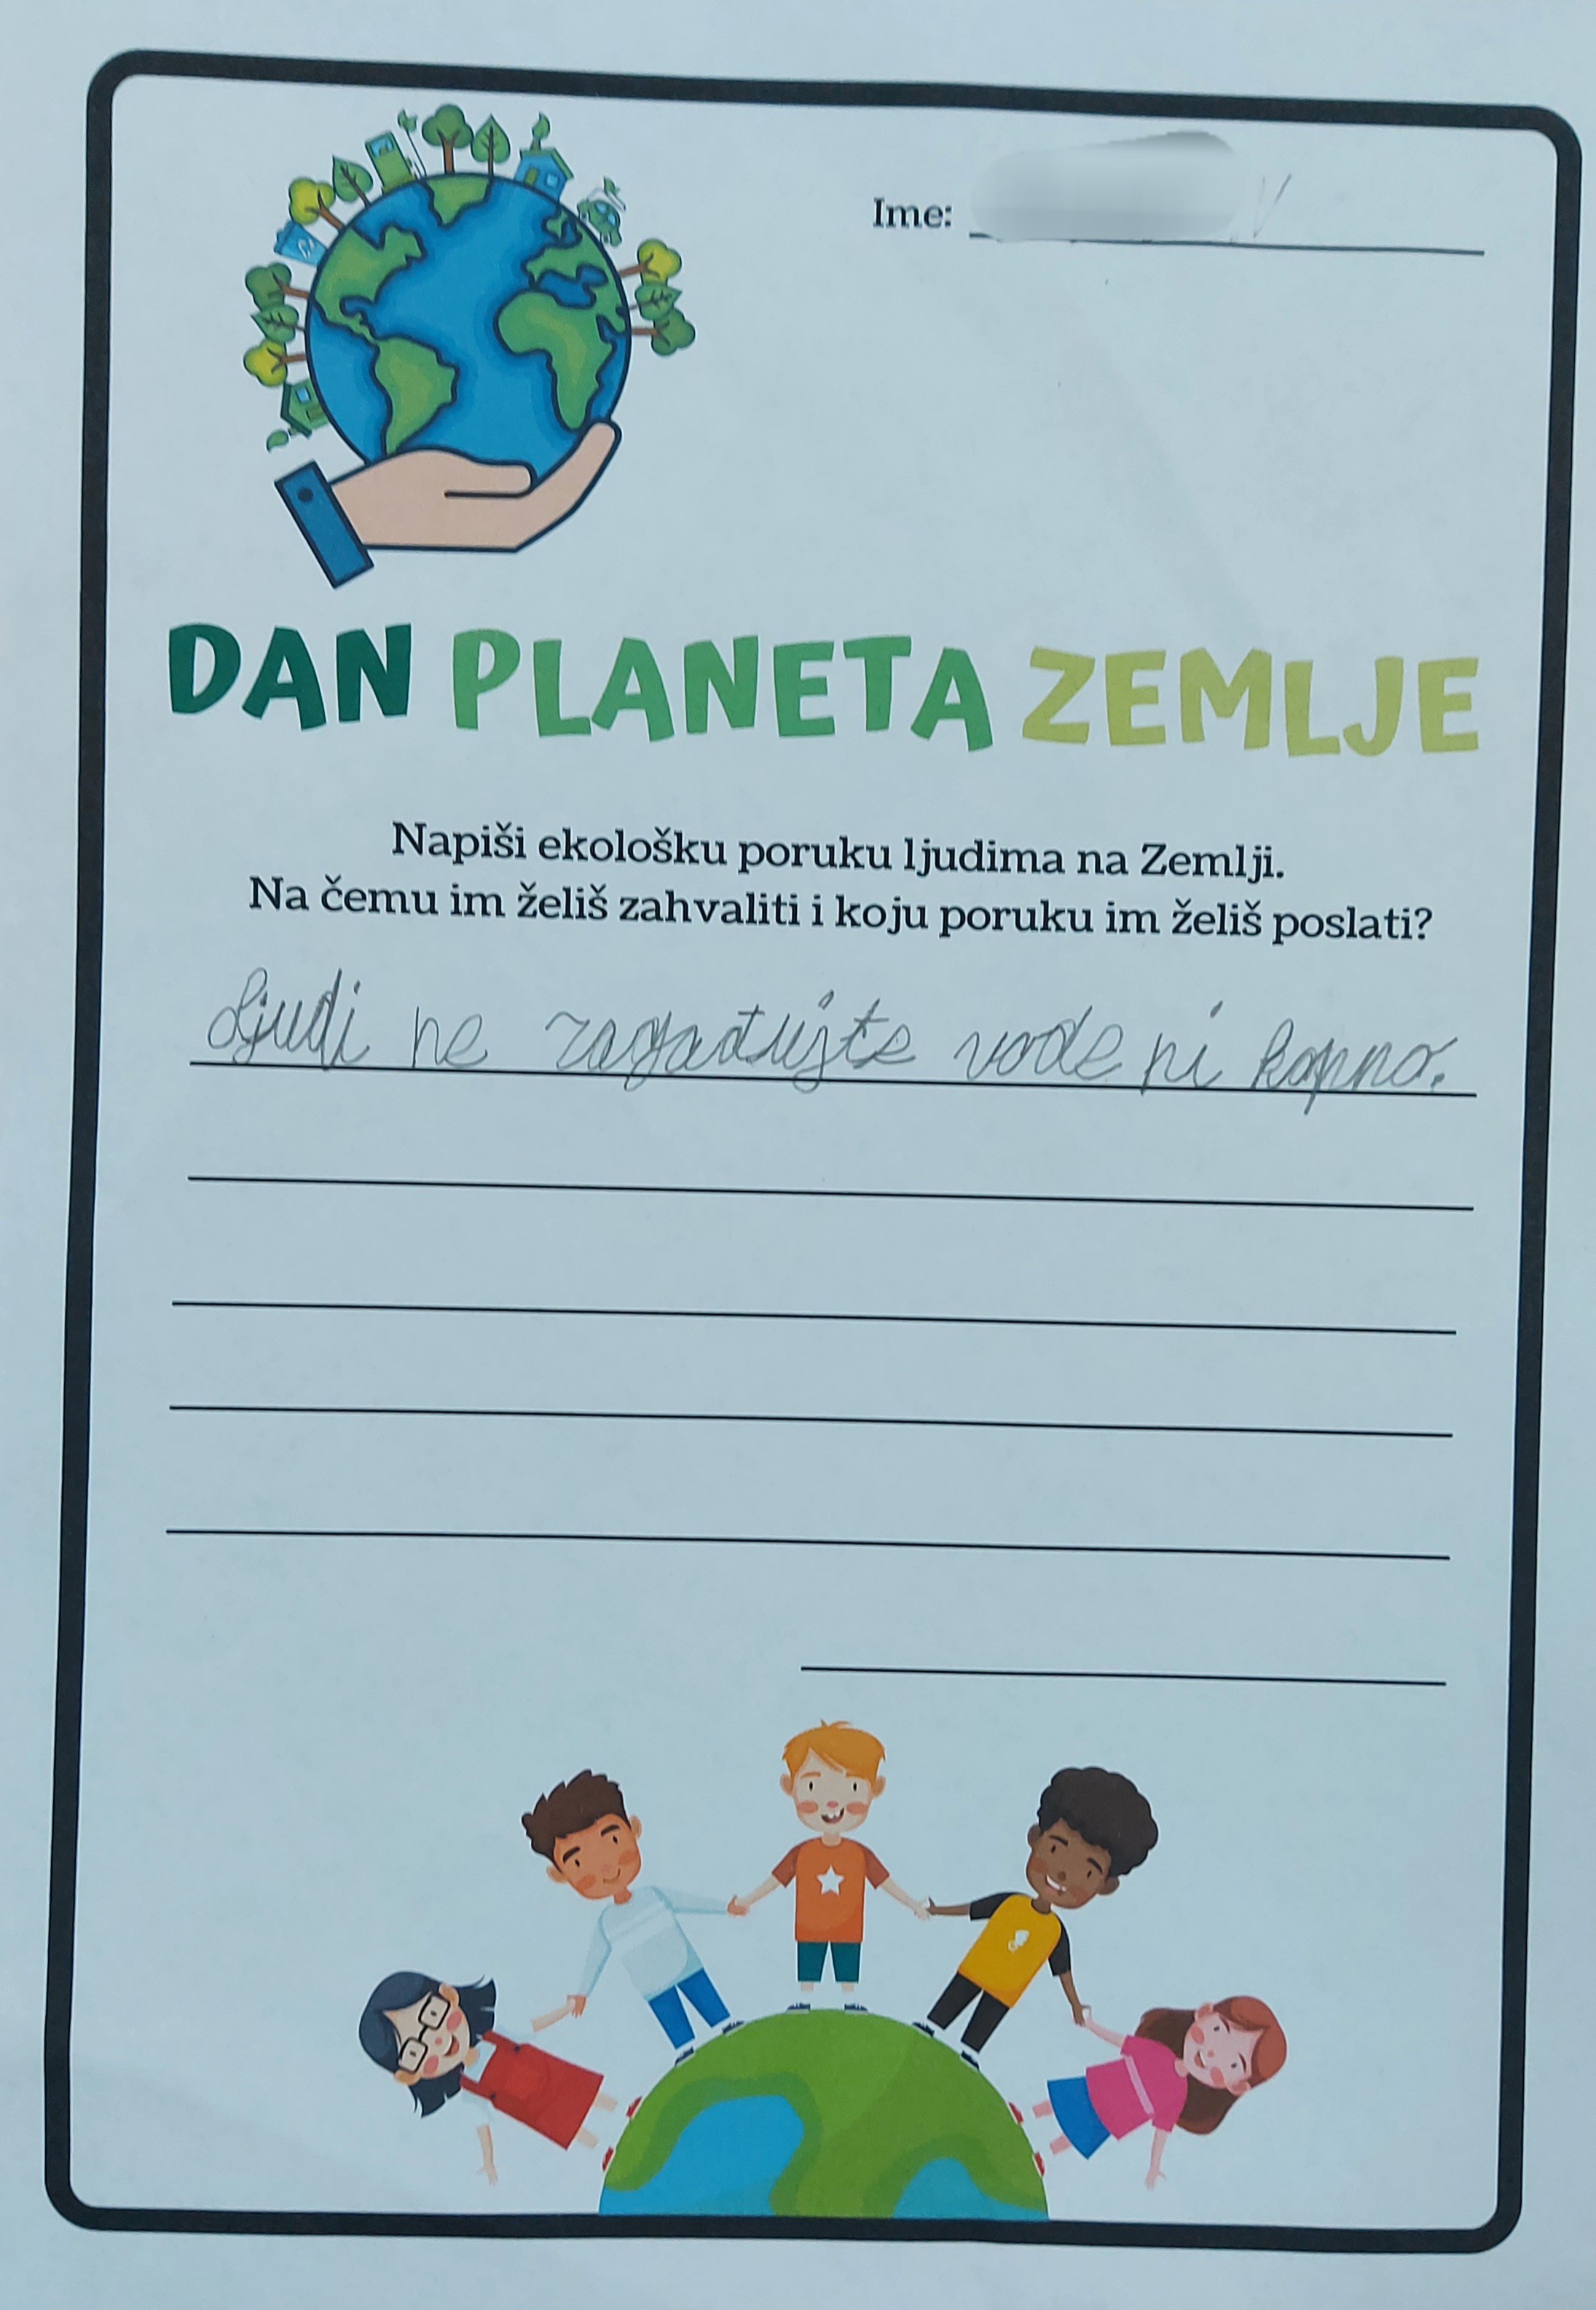 Ime:
DAN PLANETA ZEMLJE
Napiši ekološku poruku ljudima na Zemlji.
Na čemu im želiš zahvaliti i koju poruku im želiš poslati?
Ljudi ne zagađujte vode ni kopno.